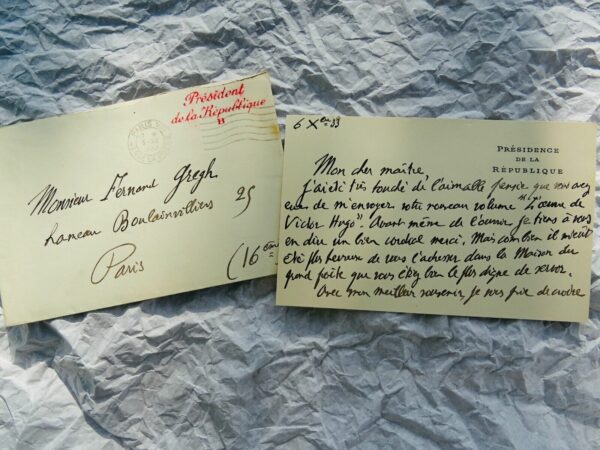 Président
de la République
PARIS
Monsieur Fernand Gregh
hameau Boulainvilliers 25
(16ème)
Paris
6 Xbre 33
PRÉSIDENCE
DE LA
RÉPUBLIQUE
Mon cher maître,
J'ai été très touché de l'aimable pensée que vous avez
eue de m'envoyer votre nouveau volume "L'œuvre de
Victor Hugo". Avant même de l'ouvrir je tiens à vous
en dire un bien cordial merci. Mais combien il m'eût
été plus heureux de vous l'adresser dans la Maison du
grand poète que vous étiez bien le plus digne de
Avec mon meilleur souvenir, je vous prie de croire